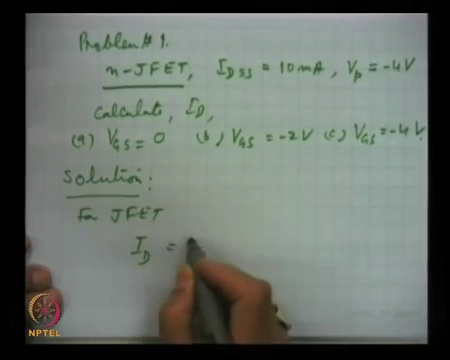 Problem # 1.
n-JFET, IDSS = 10mA, Vp = -4V
Calculate, ID,
(a) VGS = 0 (b), VGS = -2V (c) VGS = -4V.
Solution:
For JFET
ID =
NPTEL